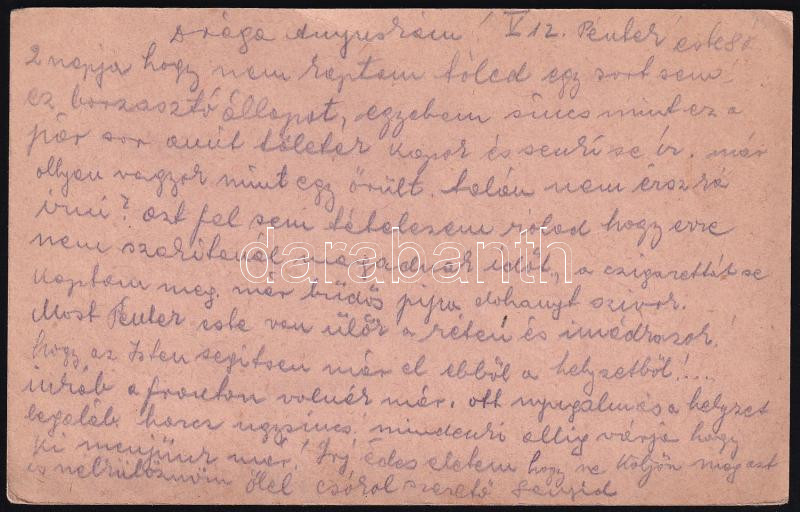 Drága Anyuskám! V 12. Péntek este 8 ó
2 napja hogy nem kaptam tőled egy sort sem,
ez borzasztó állapot, egyebem sincs mint ez a
pár sor amit tőletek kapok és senki se ír. már
ollyan vagyok mint egy őrült. talán nem érsz rá
írni? azt fel sem tételezem rólad hogy erre
nem szakítanál magadnak időt, a czigarettát se
kaptam meg. már büdös pipa dohányt szivok.
Most Péntek este van ülök a réten és imádkozok!
hogy az Isten segítsen már el ebből a helyzetből!...
inkáb a fronton volnék már. ott nyugalmas a helyzet
legaláb. harcz ugysincs. mindenki allig várja hogy
ki menjünk már! Irj édes életem hogy ne költjön meg azt
is nélkülöznöm ölel csókol szerető
darabanth